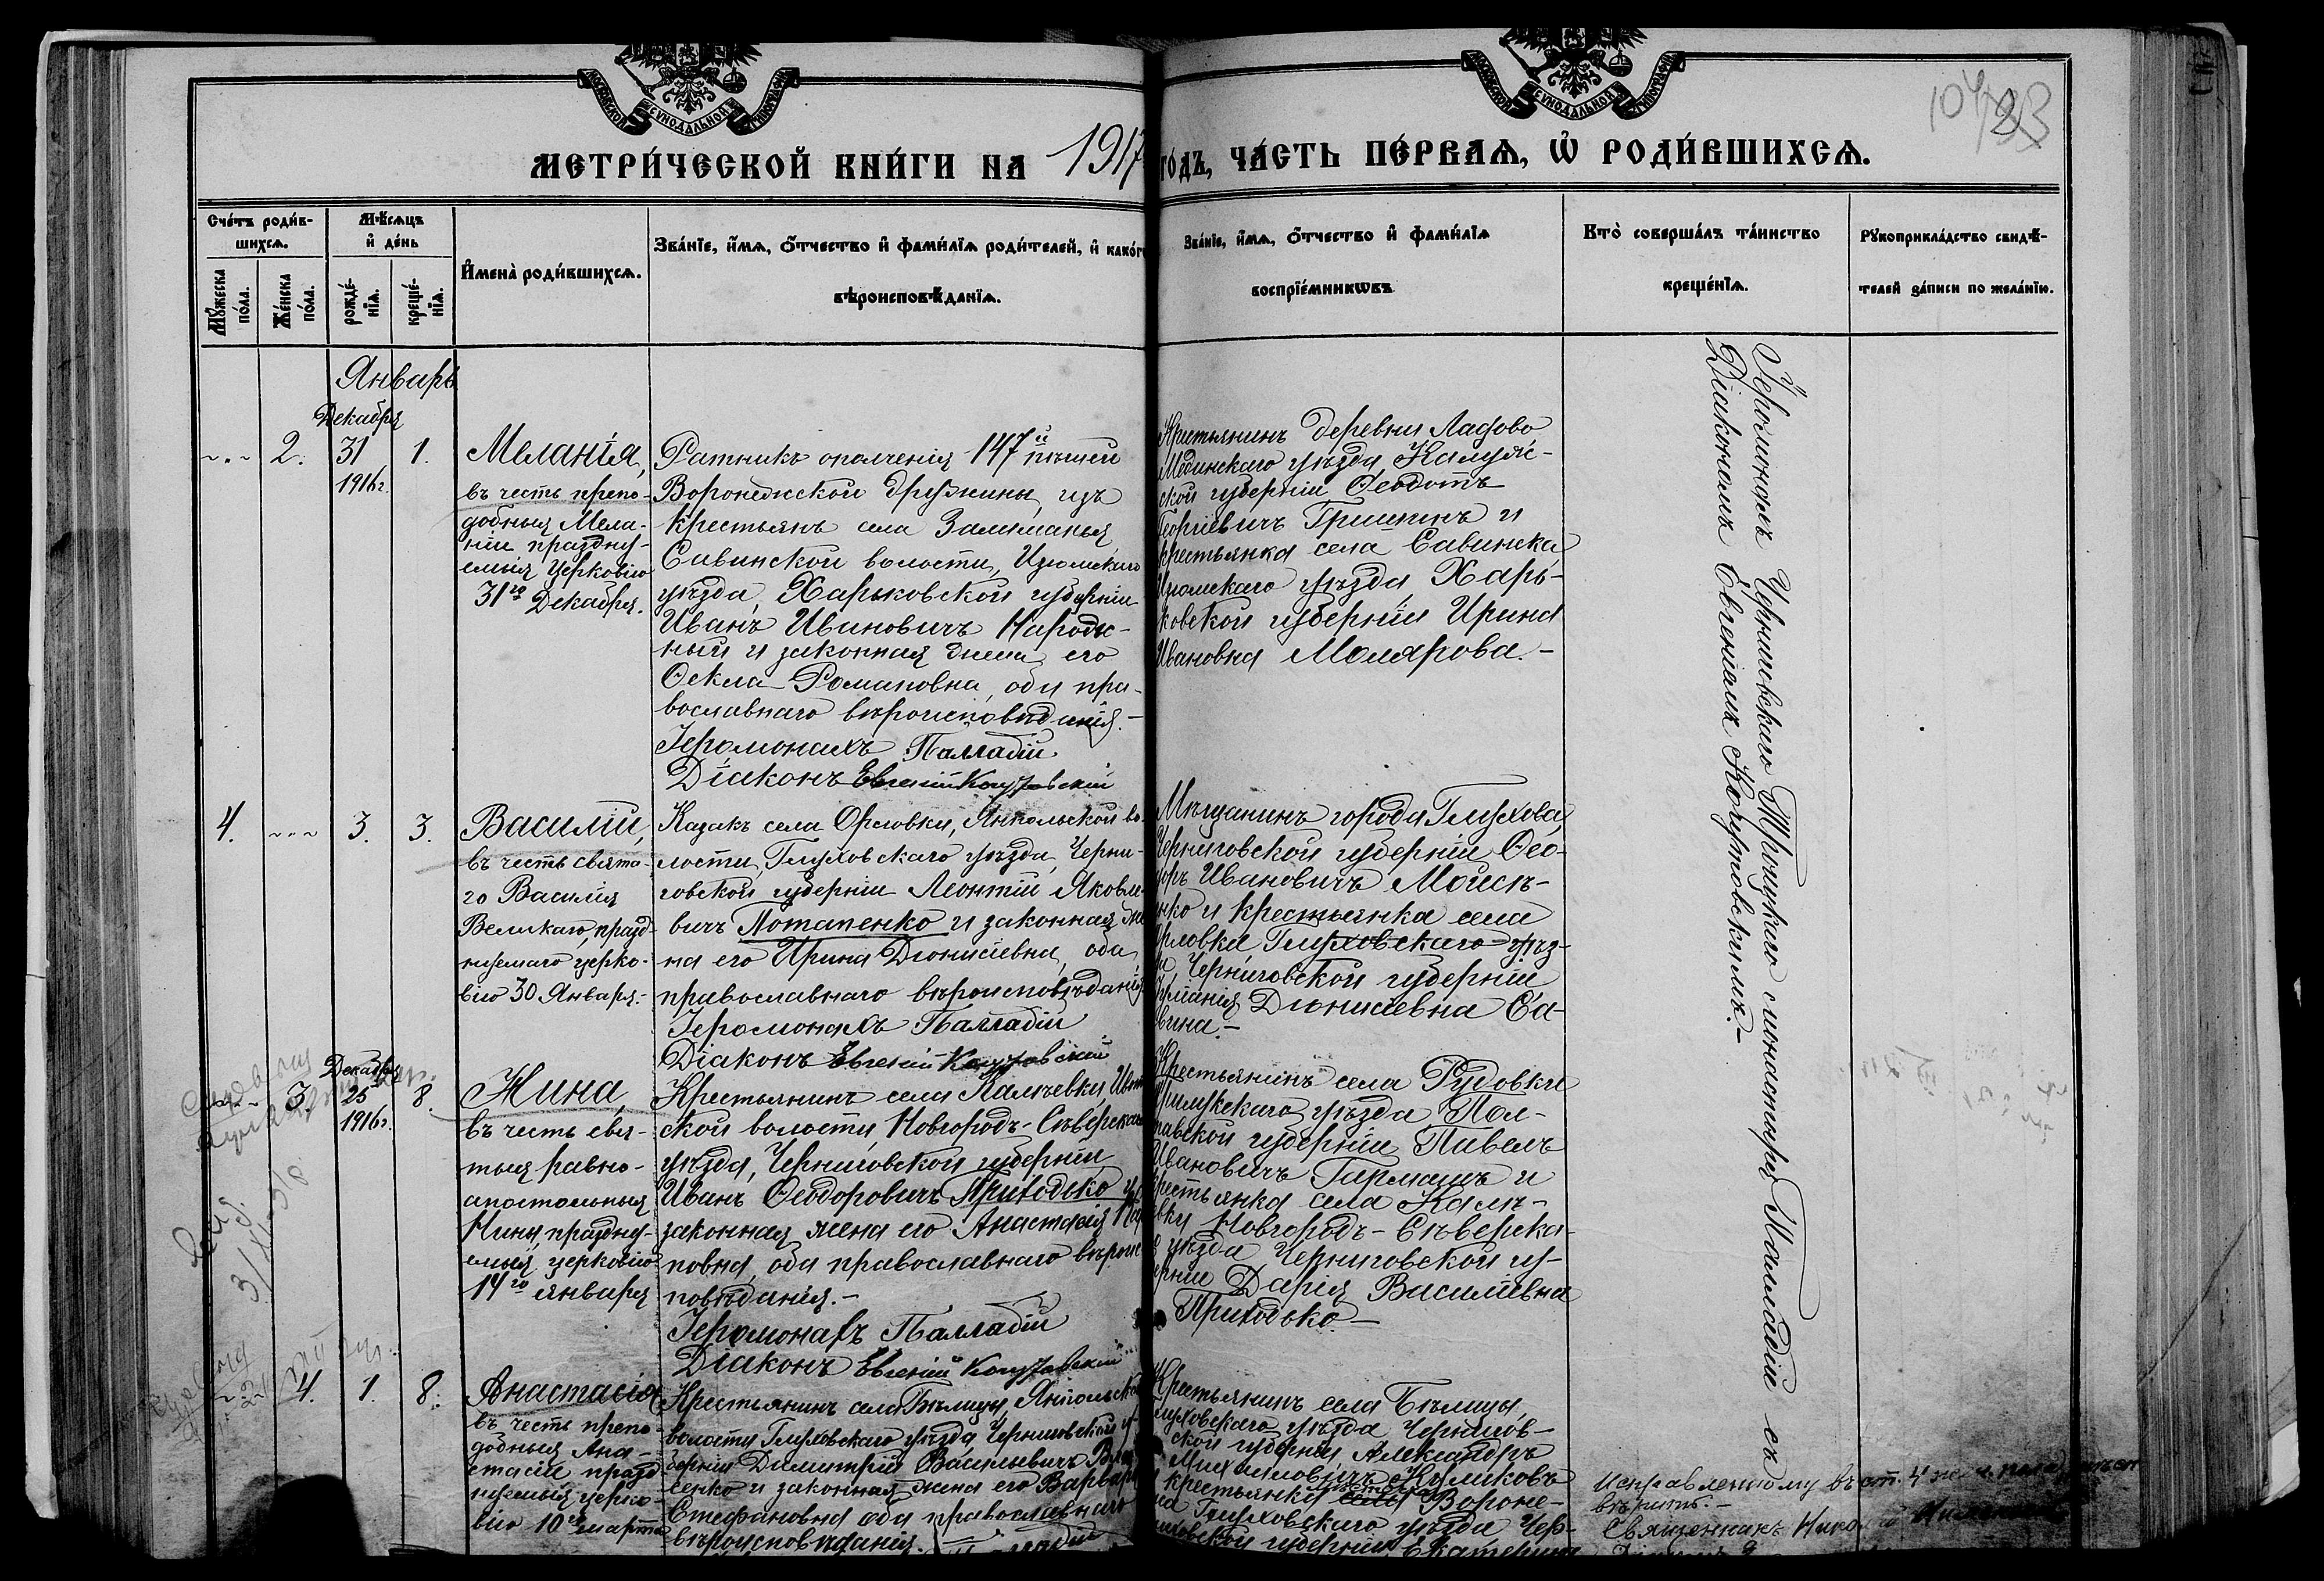 МОСКОВСКОЙ СѴНОДАЛЬНОЙ ТИПОГРАФІИ
МОСКОВСКОЙ СѴНОДАЛЬНОЙ ТИПОГРАФІИ
104
83
МЕТРИ́ЧЕСКОЙ КНИ́ГИ НА 1917 ГО́ДЪ, ЧА́СТЬ ПЕ́РВАѦ, Ѡ҆ РОДИ́ВШИХСѦ.
Сче́тъ роди́в-
шихсѧ.
Мꙋ́жеска
по́ла.
Же́нска
по́ла.
Мѣ́сѧцъ
и҆ де́нь
рожде́-
нїѧ.
креще́-
нїѧ.
И҆мена̀ роди́вшихсѧ.
Зва́нїе, и҆́мѧ, ѻ҆́тчество и҆ фами́лїѧ роди́телей, и҆ како́гѡ
вѣроисповѣ́данїѧ.
Зва́нїе, и҆́мѧ, ѻ҆́тчество и҆ фами́лїѧ
воспрїе́мникѡвъ
Кто̀ соверша́лъ та́инство
креще́нїѧ.
Рꙋкоприкла́дство свидѣ́-
телей за́писи по жела́нїю.
Январь
Декабря
2. 31 1.
1916 г.
Меланія,
въ честь препо-
добныя Мела-
ніи праздну-
емыя Церковію
31го Декабря.
Ратникъ ополченія 147й пѣшей
Воронежской дружины, изъ
крестьянъ села Залиманья
Савинской волости, Изюмскаго
уѣзда, Харьковской губерніи
Иванъ Ивановичъ Народи-
ный и законная жена его
Ѳекла Романовна, оба пра-
вославнаго вѣроисповѣданія.-
Іеромонахъ Палладій
Діаконъ Евгеній Кочуговскій
Крестьянинъ деревни Ладово
Мединскаго уѣзда, Калуж-
ской губерніи Ѳеодотъ
Георгіевичъ Гришинъ и
крестьянка села Савинска,
Изюмскаго уѣзда, Харь-
ковской губерніи Ирина
Ивановна Молярова.-
Іеромонахъ Троицкаго монастыря Палладій съ
Діакономъ Евгеніемъ Кочуговскимъ.-
4. 3. 3.
Василій,
въ честь свята-
го Василія
Великаго, празд-
нуемаго церко-
вію 30 Января.-
Казакъ села Орловки, Янпольской во-
лости, Глуховскаго уѣзда, Черни-
говской губерніи Леонтій Яковле-
вичъ Потапенко и законная же-
на его Ирина Діонисіевна, оба
православнаго вѣроисповѣданія
Іеромонахъ Палладій
Діаконъ Евгеній Кочуговскій
Мѣщанинъ города Глухова,
Черниговской губерніи Ѳео-
доръ Ивановичъ Моисѣ-
енко и крестьянка села
Орловки Глуховскаго уѣз-
да, Черниговской губерніи
Діонисіевна Са-
вина.-
Декабря
3. 25 8.
1916 г.
Нина,
въ честь свя-
тыя равно-
апостольныя
Нины, праздну-
емыя церковію
14го января
Крестьянинъ села
ской волости, Новгородъ-Сѣверскаго
уѣзда, Черниговской губерніи
Иванъ Ѳеодоровичъ Приходько и
законная жена его Анастасія
повна, оба православнаго вѣроис-
повѣданія.-
Іеромонахъ Палладій
Діаконъ Евгеній Кочуговскій
Крестьянинъ села Рудовки
Прилукскаго уѣзда Пол-
тавской губерніи Павелъ
Ивановичъ Гармашъ и
крестьянка села
Новгородъ-Сѣверска-
го уѣзда Черниговской гу-
берніи Дарія Василіевна
Приходько-
4. 1. 8.
Анастасія
въ честь препо-
добныя Ана-
стасіи празд-
нуемыя церко-
вію 10го марта
Крестьянинъ села Бѣлицы, Янпольской
волости Глуховскаго уѣзда Черниговской гу-
берніи Димитрій Васильевичъ
сенко и законная жена его Варвара
Стефановна оба православнаго
вѣроисповѣданія.
Крестьянинъ села Бѣлицы,
Глуховскаго уѣзда Чернигов-
ской губерніи Александръ
Михайловичъ Куликовъ
и крестьянка Вороне-
Глуховскаго уѣзда Чер-
ниговской губерніи Екатерина
Исправленному въ ст. 4
вѣрить.-
Священникъ